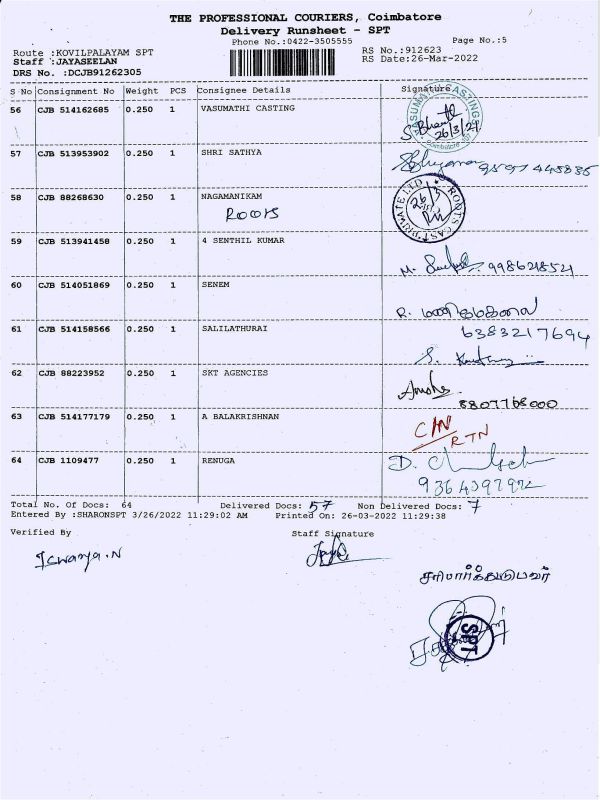 THE PROFESSIONAL COURIERS, Coimbatore
Delivery Runsheet - SPT
Phone No.:0422-3505555 Page No.:5
Route :KOVILPALAYAM SPT RS No.:912623
Staff :JAYASEELAN RS Date:26-Mar-2022
DRS No. :DCJB91262305
S No Consignment No Weight PCS Consignee Details Signature
56 CJB 514162685 0.250 1 VASUMATHI CASTING
26/3/22
57 CJB 513953902 0.250 1 SHRI SATHYA
58 CJB 88268630 0.250 1 NAGAMANIKAM
ROOTS
26/3
59 CJB 513941458 0.250 1 4 SENTHIL KUMAR
60 CJB 514051869 0.250 1 SENEM
61 CJB 514158566 0.250 1 SALILATHURAI 6383217694
62 CJB 88223952 0.250 1 SKT AGENCIES
8807768000
63 CJB 514177179 0.250 1 A BALAKRISHNAN C/N
RTN
64 CJB 1109477 0.250 1 RENUGA
Total No. Of Docs: 64 Delivered Docs: 57 Non Delivered Docs: 7
Entered By :SHARONSPT 3/26/2022 11:29:02 AM Printed On: 26-03-2022 11:29:38
Verified By Staff Signature
Icwarya.N
சரிபார்த்தவர்
SPT